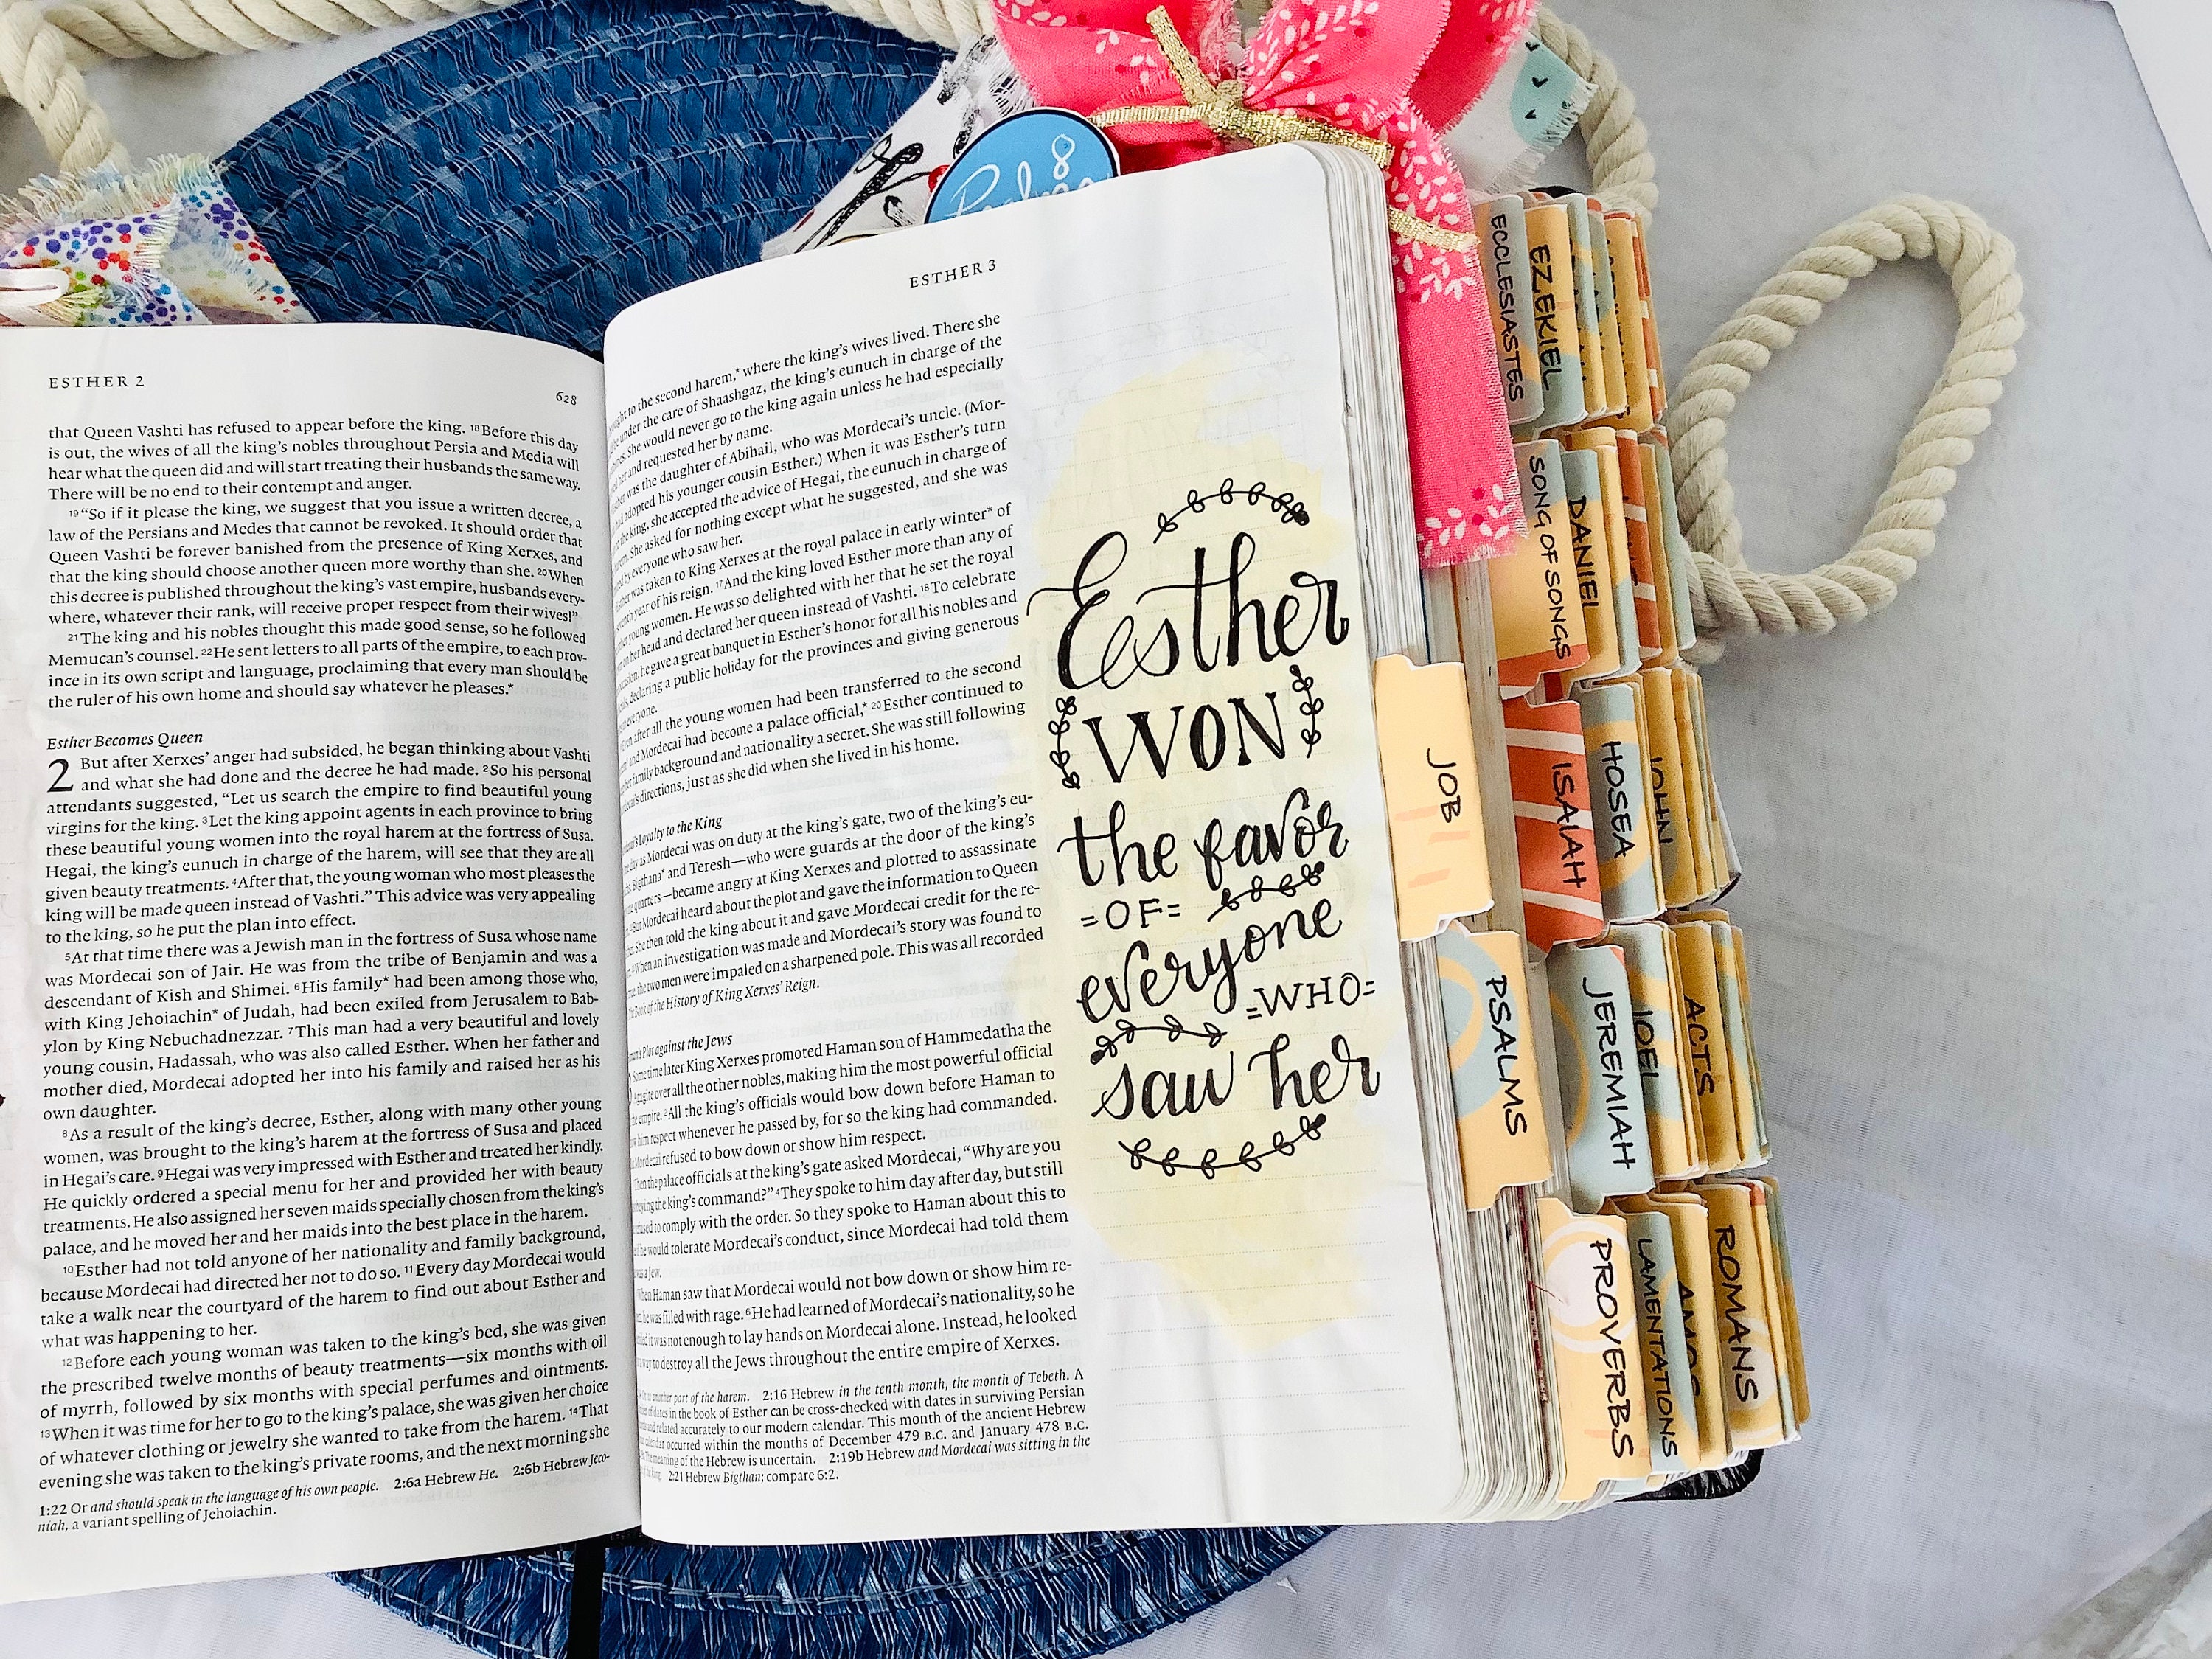 ESTHER 2
628
that Queen Vashti has refused to appear before the king. 18Before this day
is out, the wives of all the king's nobles throughout Persia and Media will
hear what the queen did and will start treating their husbands the same way.
There will be no end to their contempt and anger.
19“So if it please the king, we suggest that you issue a written decree, a
law of the Persians and Medes that cannot be revoked. It should order that
Queen Vashti be forever banished from the presence of King Xerxes, and
that the king should choose another queen more worthy than she. 20When
this decree is published throughout the king's vast empire, husbands every-
where, whatever their rank, will receive proper respect from their wives!”
21The king and his nobles thought this made good sense, so he followed
Memucan's counsel. 22He sent letters to all parts of the empire, to each prov-
ince in its own script and language, proclaiming that every man should be
the ruler of his own home and should say whatever he pleases.*
Esther Becomes Queen
2 But after Xerxes' anger had subsided, he began thinking about Vashti
and what she had done and the decree he had made. 2So his personal
attendants suggested, “Let us search the empire to find beautiful young
virgins for the king. 3Let the king appoint agents in each province to bring
these beautiful young women into the royal harem at the fortress of Susa.
Hegai, the king's eunuch in charge of the harem, will see that they are all
given beauty treatments. 4After that, the young woman who most pleases the
king will be made queen instead of Vashti.” This advice was very appealing
to the king, so he put the plan into effect.
5At that time there was a Jewish man in the fortress of Susa whose name
was Mordecai son of Jair. He was from the tribe of Benjamin and was a
descendant of Kish and Shimei. 6His family* had been among those who,
with King Jehoiachin* of Judah, had been exiled from Jerusalem to Bab-
ylon by King Nebuchadnezzar. 7This man had a very beautiful and lovely
young cousin, Hadassah, who was also called Esther. When her father and
mother died, Mordecai adopted her into his family and raised her as his
own daughter.
8As a result of the king's decree, Esther, along with many other young
women, was brought to the king's harem at the fortress of Susa and placed
in Hegai's care. 9Hegai was very impressed with Esther and treated her kindly.
He quickly ordered a special menu for her and provided her with beauty
treatments. He also assigned her seven maids specially chosen from the king's
palace, and he moved her and her maids into the best place in the harem.
10Esther had not told anyone of her nationality and family background,
because Mordecai had directed her not to do so. 11Every day Mordecai would
take a walk near the courtyard of the harem to find out about Esther and
what was happening to her.
12Before each young woman was taken to the king's bed, she was given
the prescribed twelve months of beauty treatments—six months with oil
of myrrh, followed by six months with special perfumes and ointments.
13When it was time for her to go to the king's palace, she was given her choice
of whatever clothing or jewelry she wanted to take from the harem. 14That
evening she was taken to the king's private rooms, and the next morning she
1:22 Or and should speak in the language of his own people. 2:6a Hebrew He. 2:6b Hebrew Jeco-
niah, a variant spelling of Jehoiachin.
ESTHER 3
to the second harem,* where the king's wives lived. There she
under the care of Shaashgaz, the king's eunuch in charge of the
She would never go to the king again unless he had especially
and requested her by name.
was the daughter of Abihail, who was Mordecai's uncle. (Mor-
adopted his younger cousin Esther.) When it was Esther's turn
the king, she accepted the advice of Hegai, the eunuch in charge of
She asked for nothing except what he suggested, and she was
by everyone who saw her.
was taken to King Xerxes at the royal palace in early winter* of
year of his reign. 17And the king loved Esther more than any of
young women. He was so delighted with her that he set the royal
on her head and declared her queen instead of Vashti. 18To celebrate
he gave a great banquet in Esther's honor for all his nobles and
declaring a public holiday for the provinces and giving generous
everyone.
after all the young women had been transferred to the second
and Mordecai had become a palace official,* 20Esther continued to
family background and nationality a secret. She was still following
directions, just as she did when she lived in his home.
Loyalty to the King
as Mordecai was on duty at the king's gate, two of the king's eu-
Bigthana* and Teresh—who were guards at the door of the king's
quarters—became angry at King Xerxes and plotted to assassinate
But Mordecai heard about the plot and gave the information to Queen
She then told the king about it and gave Mordecai credit for the re-
When an investigation was made and Mordecai's story was found to
the two men were impaled on a sharpened pole. This was all recorded
Book of the History of King Xerxes' Reign.
Plot against the Jews
Some time later King Xerxes promoted Haman son of Hammedatha the
Agagite over all the other nobles, making him the most powerful official
empire. 2All the king's officials would bow down before Haman to
him respect whenever he passed by, for so the king had commanded.
Mordecai refused to bow down or show him respect.
Then the palace officials at the king's gate asked Mordecai, “Why are you
the king's command?” 4They spoke to him day after day, but still
refused to comply with the order. So they spoke to Haman about this to
if he would tolerate Mordecai's conduct, since Mordecai had told them
was a Jew.
When Haman saw that Mordecai would not bow down or show him re-
he was filled with rage. 6He had learned of Mordecai's nationality, so he
it was not enough to lay hands on Mordecai alone. Instead, he looked
way to destroy all the Jews throughout the entire empire of Xerxes.
another part of the harem. 2:16 Hebrew in the tenth month, the month of Tebeth. A
of dates in the book of Esther can be cross-checked with dates in surviving Persian
and related accurately to our modern calendar. This month of the ancient Hebrew
occurred within the months of December 479 B.C. and January 478 B.C.
meaning of the Hebrew is uncertain. 2:19b Hebrew and Mordecai was sitting in the
2:21 Hebrew Bigthan; compare 6:2.
Esther
WON
the favor
=OF=
everyone
=WHO=
saw her
JOB
PSALMS
PROVERBS
ECCLESIASTES
SONG OF SONGS
ISAIAH
JEREMIAH
LAMENTATIONS
EZEKIEL
DANIEL
HOSEA
JOEL
AMOS
JOHN
ACTS
ROMANS